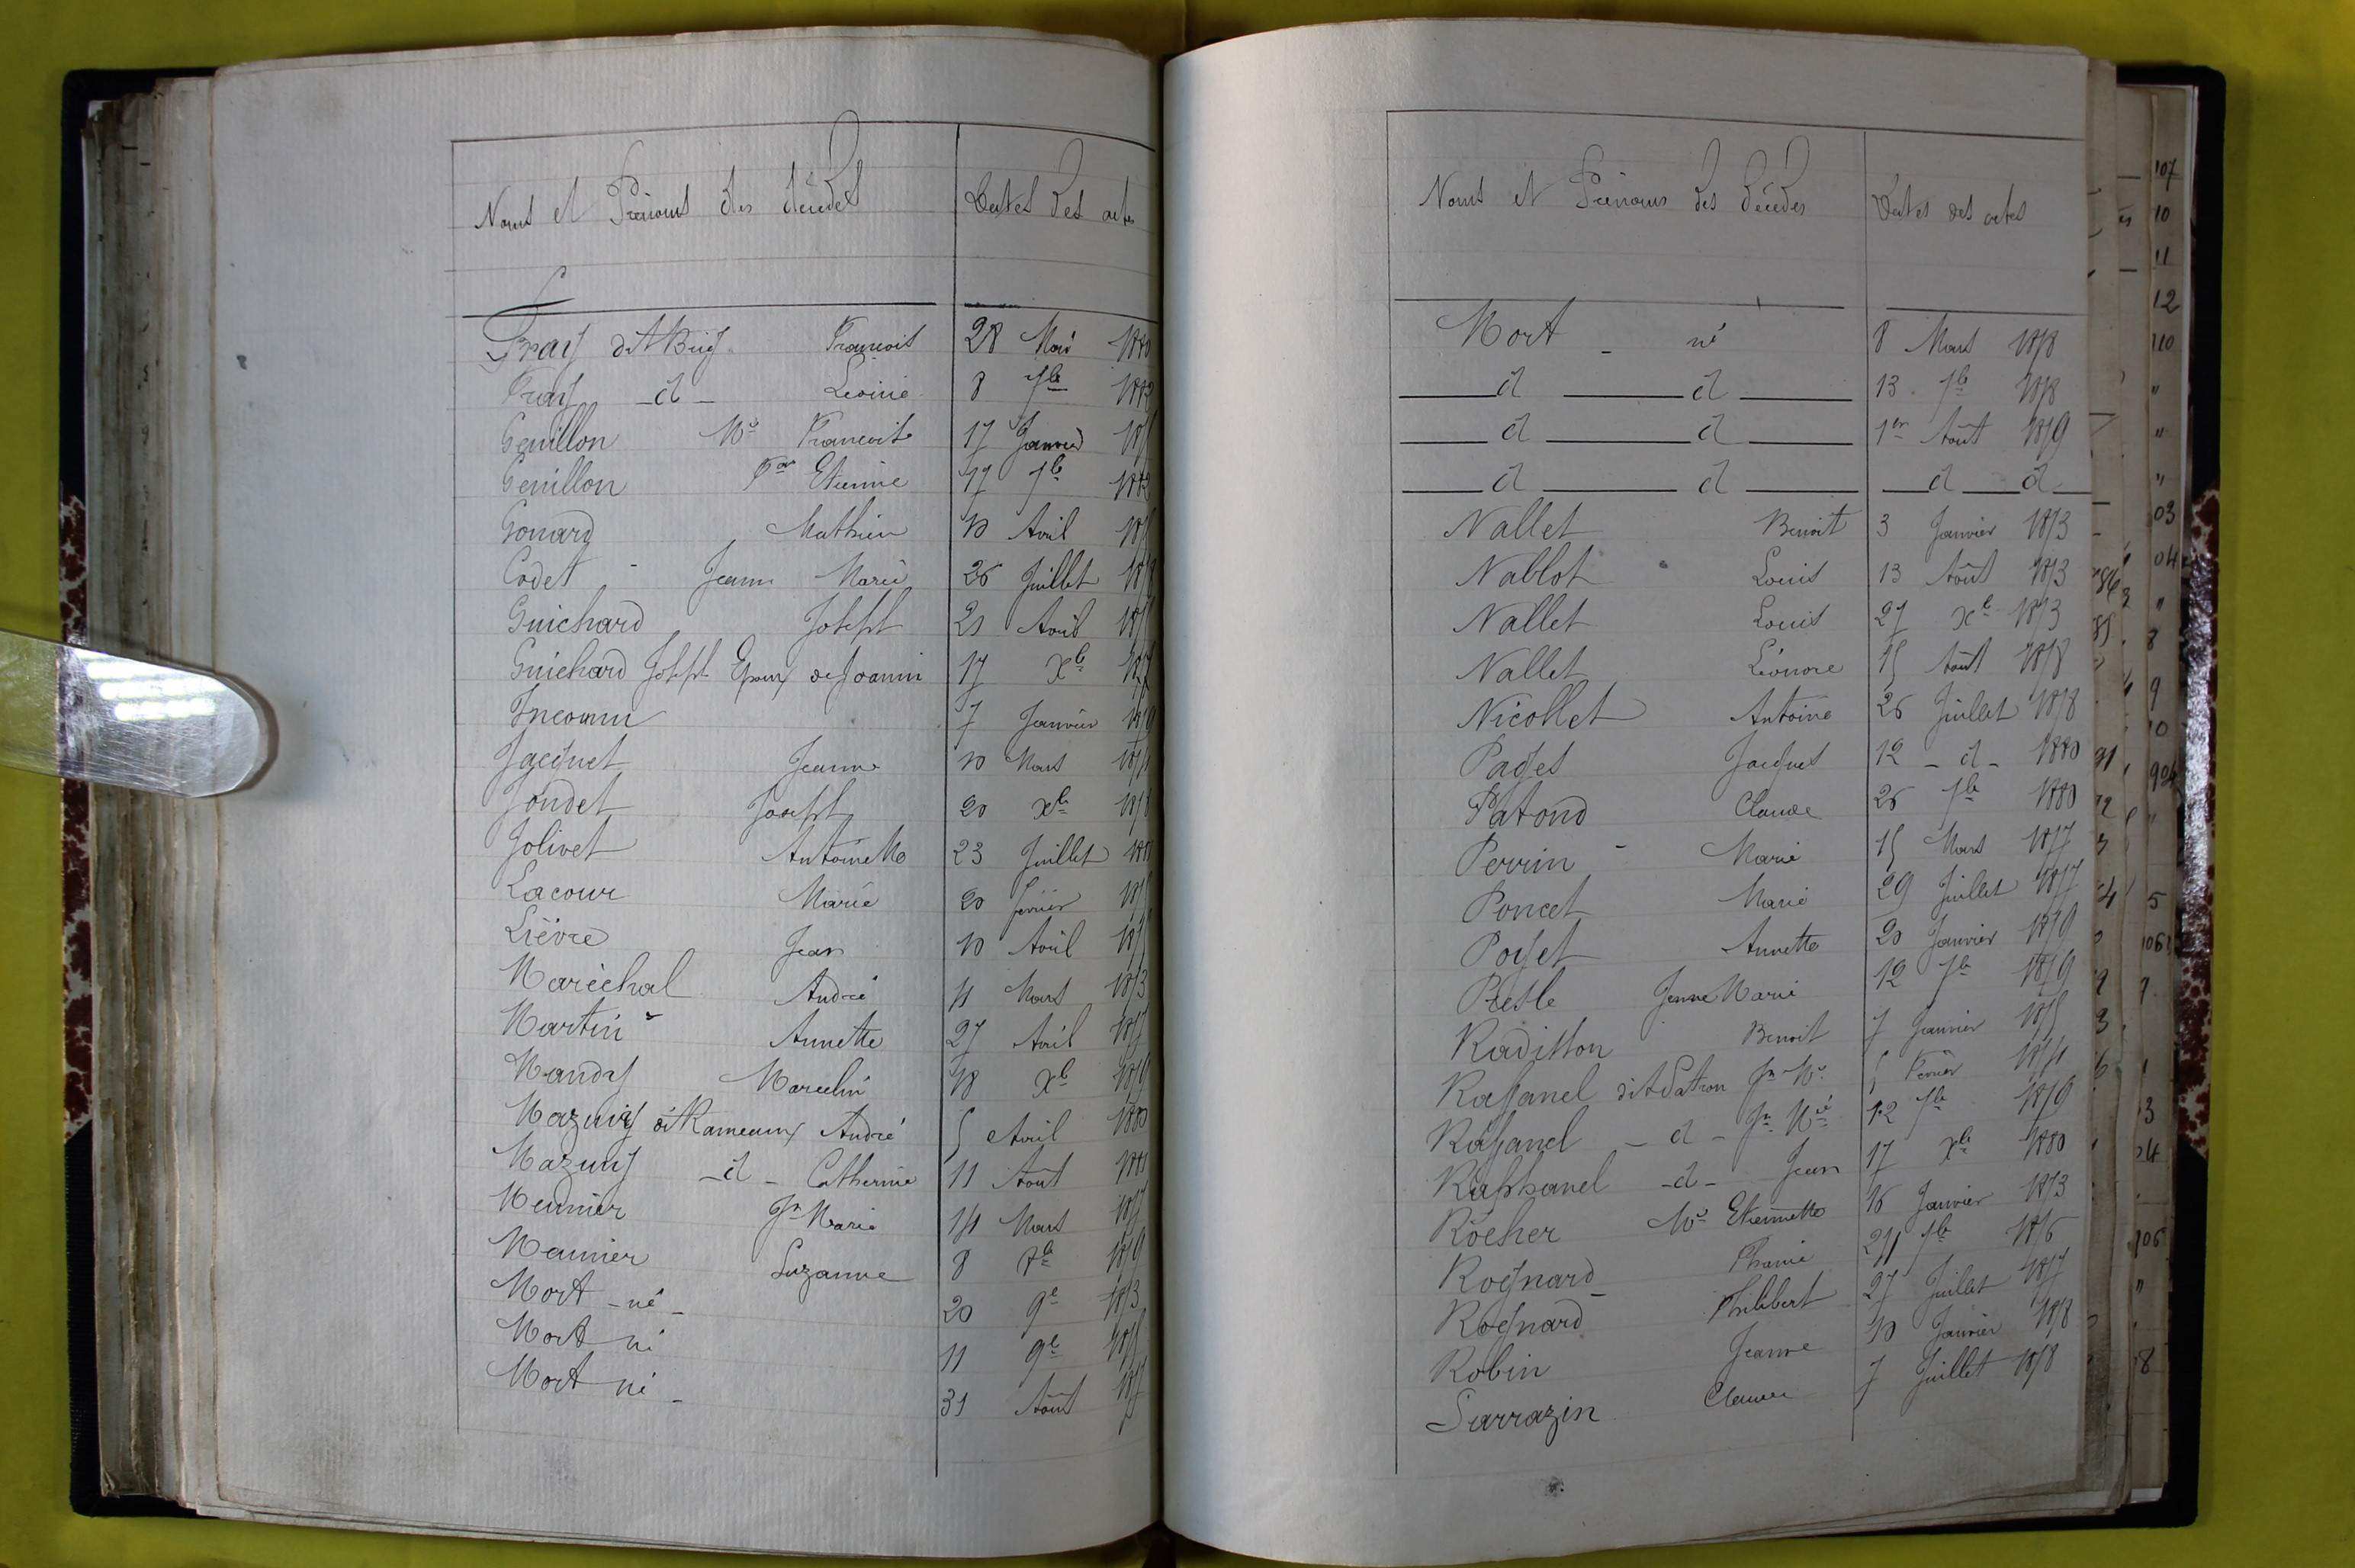 Noms et Prénoms des décédés
Dates des actes
Fray dit Buy François 28 Mai 1880
Fray -d- Léonie 8 7bre
Genillon Mie Françoise 17 Janvier
Genillon Etienne 17 7bre 1882
Gonard Mathieu 10 Avril
Godet - Jeanne Marie 26 Juillet
Guichard Joseph 21 Avril
Guichard Joseph Epoux de Joannin 17 Xbre 1877
Inconnu 7 Janvier 1879
Jacquet Jeanne 10 Mars
Jondet Joseph 20 Xbre 1878
Jolivet Antoinette 23 Juillet
Lacour Marie 20 Février
Lièvre Jean 10 Avril 1875
Maréchal André 11 Mars 1873
Martin Annette 27 Avril 1877
Mandy Marcelin 18 Xbre 1879
Mazuy dit Rameaux André 5 Avril 1880
Mazuy -d- Catherine 11 Août 1881
Meunier Jn Marie 14 Mars 1877
Meunier Suzanne 8 Xbre 1879
Mort-né- 20 9bre 1873
Mort né 11 9bre 1875
Mort né - 31 Août 1877
Noms et Prénoms des décédés
Dates des actes
Mort - né 8 Mars 1878
d d 13 7bre 1878
d d 1er Août 1879
d d d d
Nallet Benoit 3 Janvier 1873
Nablot Louis 13 Août 1873
Nallet Louis 27 Xbre 1873
Nallet Léonore 15 Août 1878
Nicollet Antoine 26 Juillet 1878
Pages Jacques 12 -d- 1880
Patond Claude 26 7bre 1880
Perrin - Marie 15 Mars 1877
Poncet Marie 29 Juillet 1877
Poyet Annette 20 Janvier 1879
Presle Jeanne Marie 12 7bre 1879
Radisson Benoit 7 Janvier 1875
Raffanel dit Patron Jn Mie 5 Février 1874
Raffanel -d- Jn Mie 12 7bre 1879
Raphanel -d- Jean 17 Xbre 1880
Rocher Mie Etiennette 16 Janvier 1873
Rognard Phanie 24 7bre 1876
Rognard Philibert 27 Juillet 1877
Robin Jeanne 10 Janvier 1878
Sarrazin Claude 7 Juillet 1878